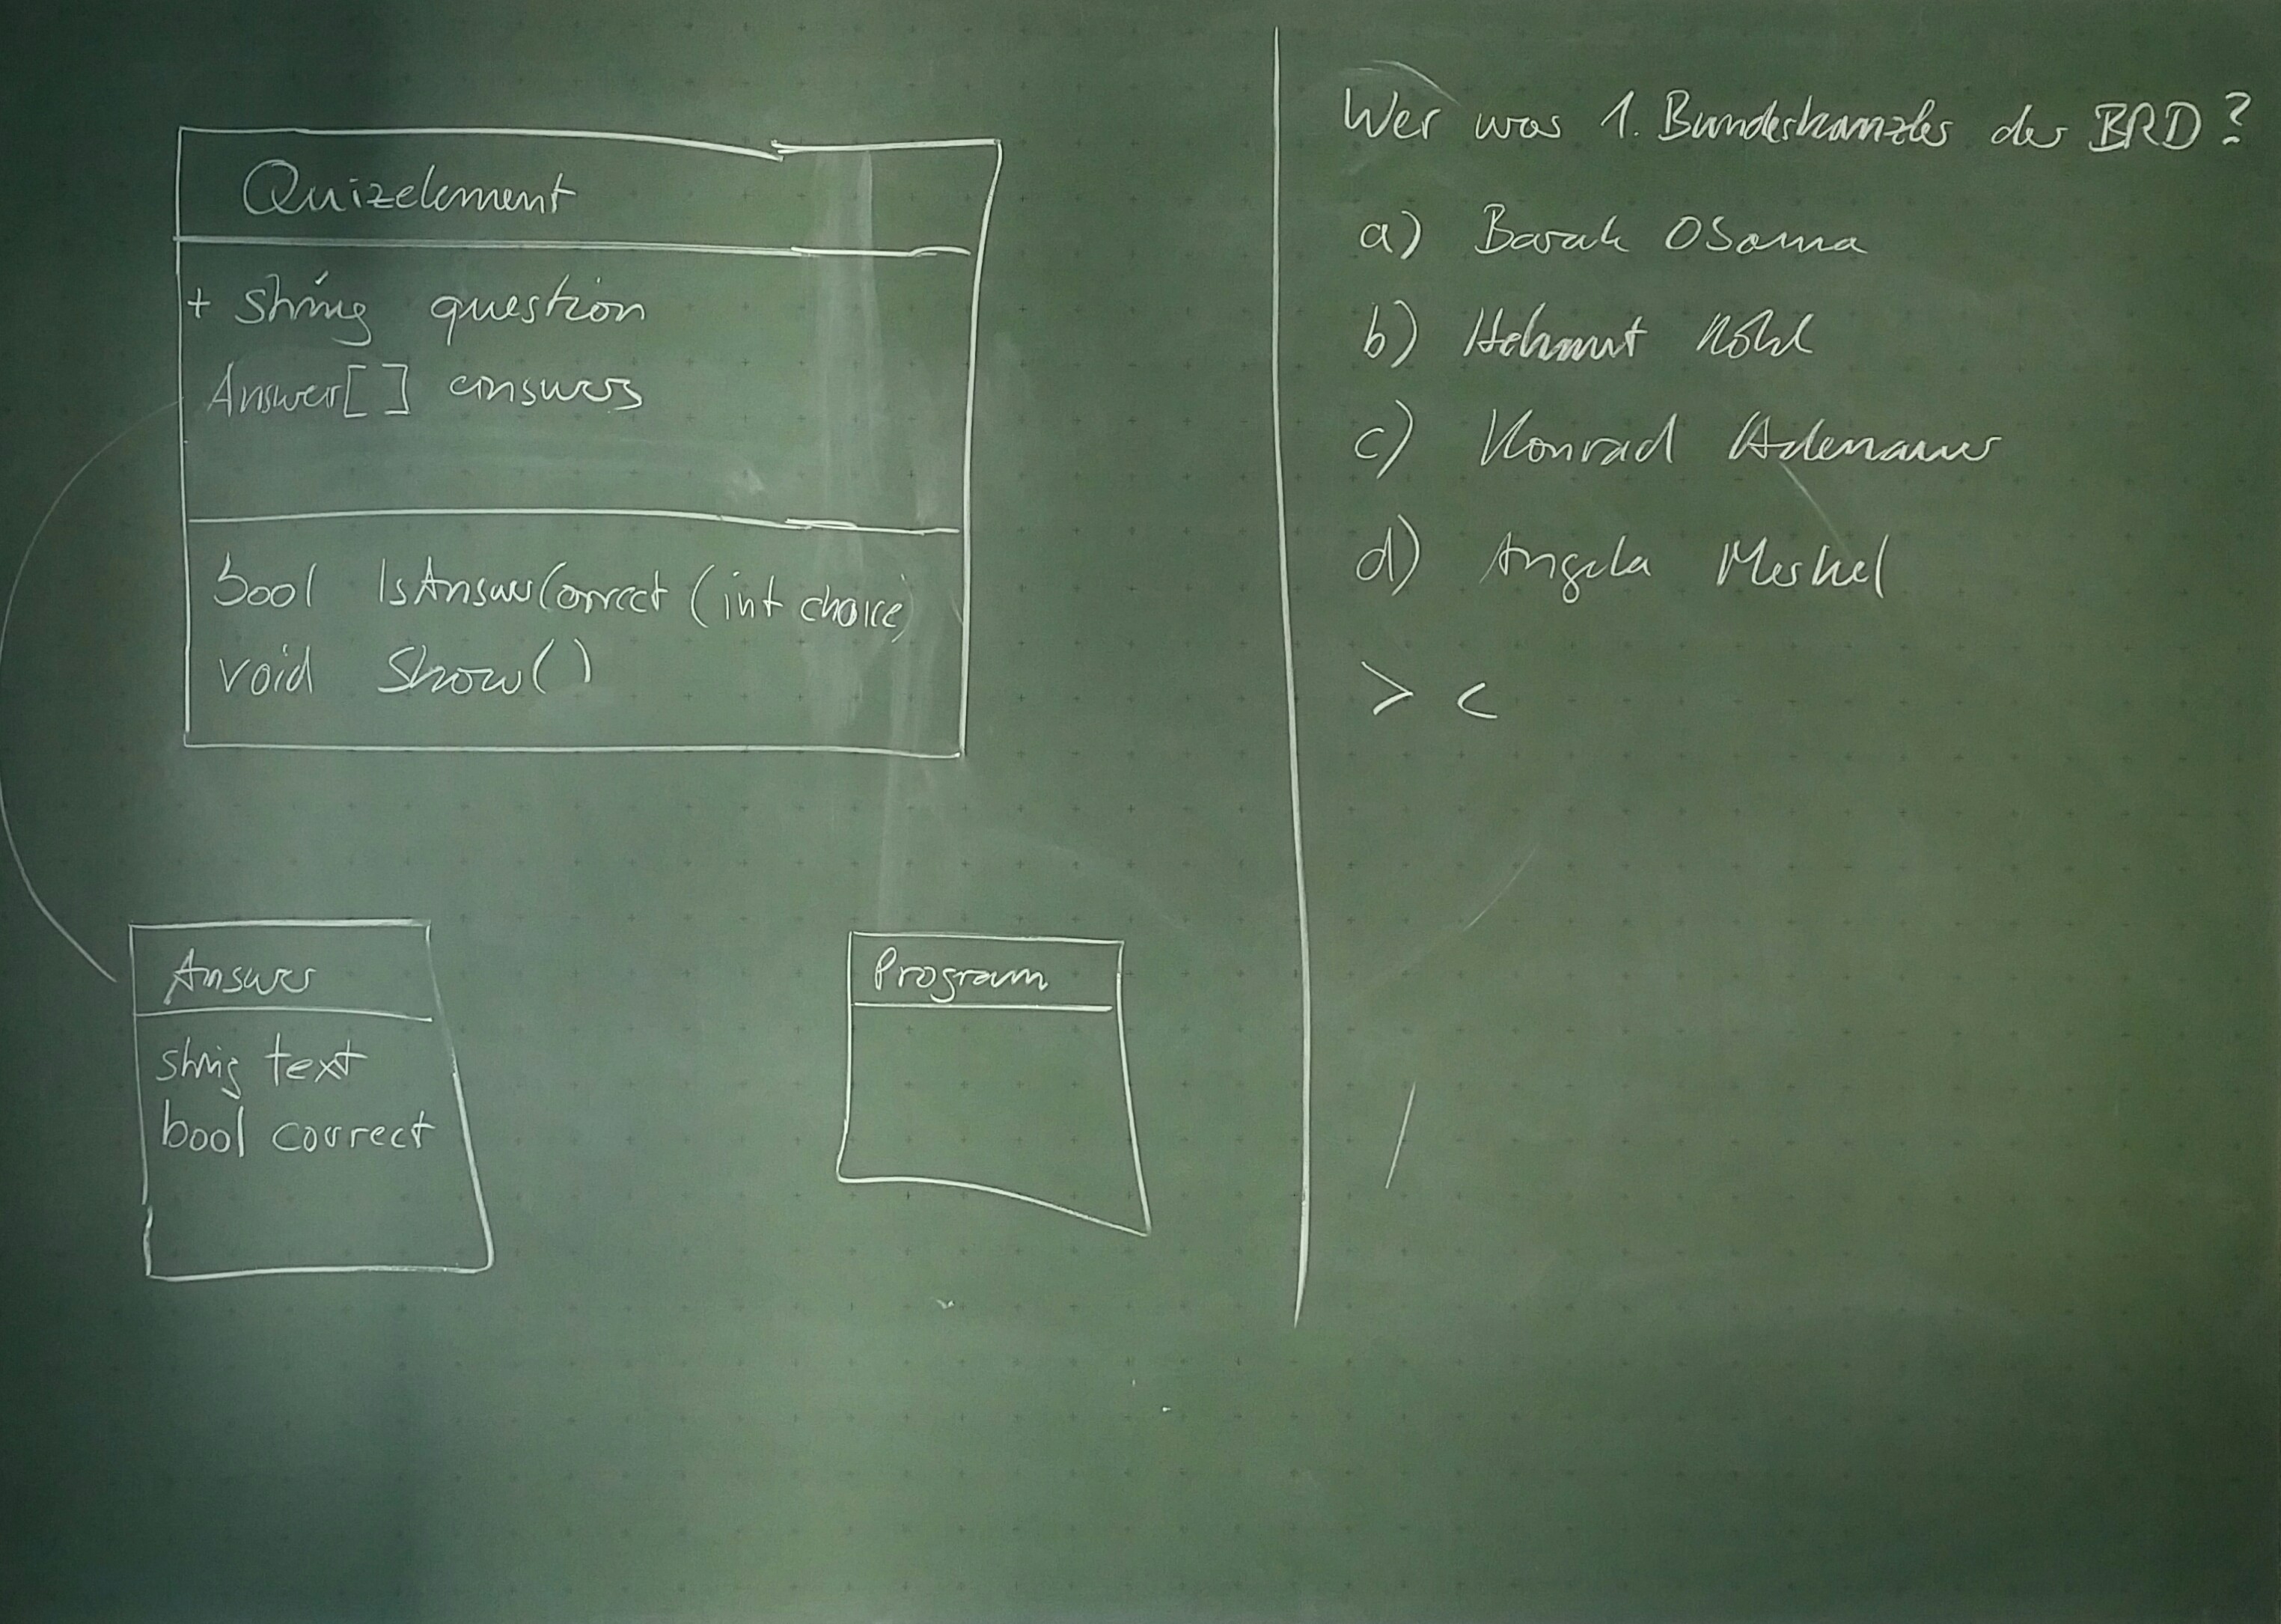 Quizelement
+ string question
Answer[] answers
bool IsAnswerCorrect (int choice)
void Show()
Answer
string text
bool correct
Program
Wer war 1. Bundeskanzler der BRD?
a) Barak Obama
b) Helmut Kohl
c) Konrad Adenauer
d) Angela Merkel
> c